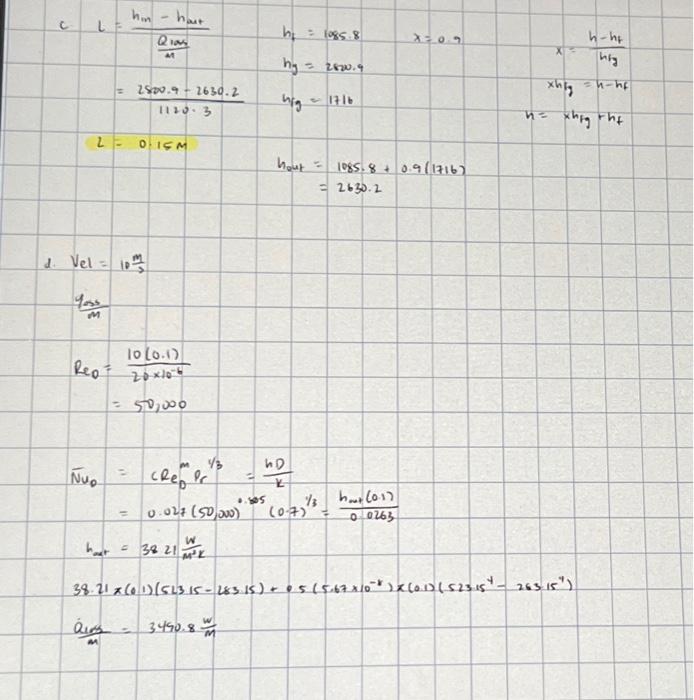 c L = (hin - hout) / (Qloss/m)
= (2800.9 - 2630.2) / 1120.3
L = 0.15M
hf = 1085.8
hg = 2800.9
hfg = 1716
x = 0.9
x = (h - hf) / hfg
xhfg = h - hf
h = xhfg + hf
hout = 1085.8 + 0.9(1716)
= 2630.2
d. Vel = 10 m/s
qloss/m
ReD = 10(0.1) / 20×10^-6
= 50,000
N̄uD = CReD^m Pr^1/3 = hD/k
= 0.027(50,000)^0.805 (0.7)^1/3 = hout(0.1) / 0.0263
hout = 38.21 W/m²K
38.21 × (0.1)(523.15 - 283.15) + 0.5(5.67×10^-8) × (0.1)(523.15^4 - 263.15^4)
Qloss/m = 3490.8 W/m